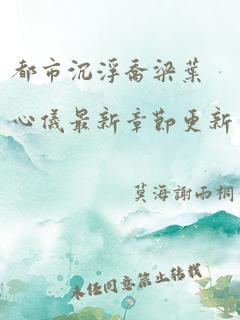 都市沉浮喬梁葉
心儀最新章節更新
莫海謝雨桐
未经同意禁止转载